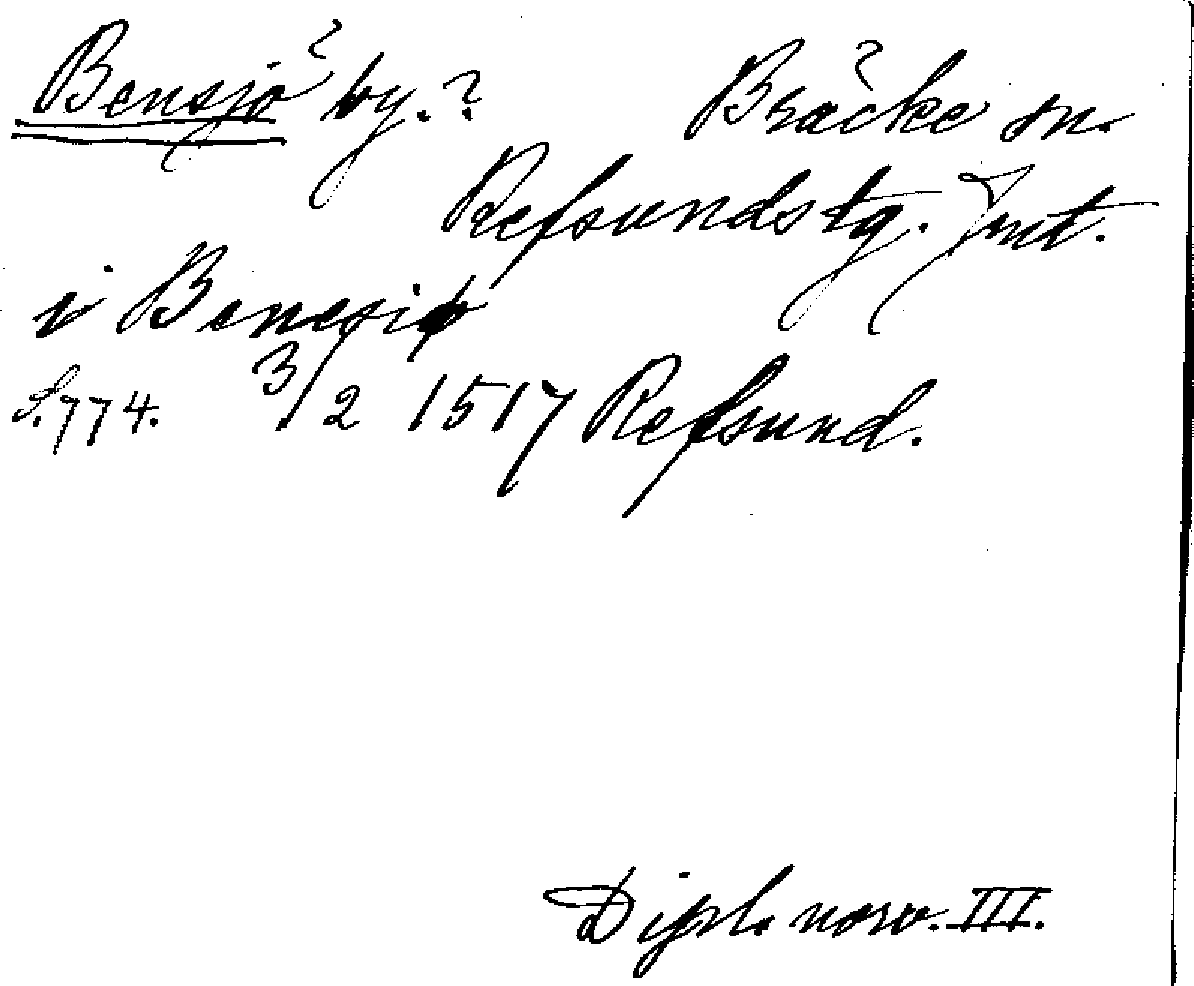 Bensjö by.? Bräcke sn.
Refsunds tg. Jmt.
i Benesiø
S.774. 3/2 1517 Refsund.
Dipl. norv. III.